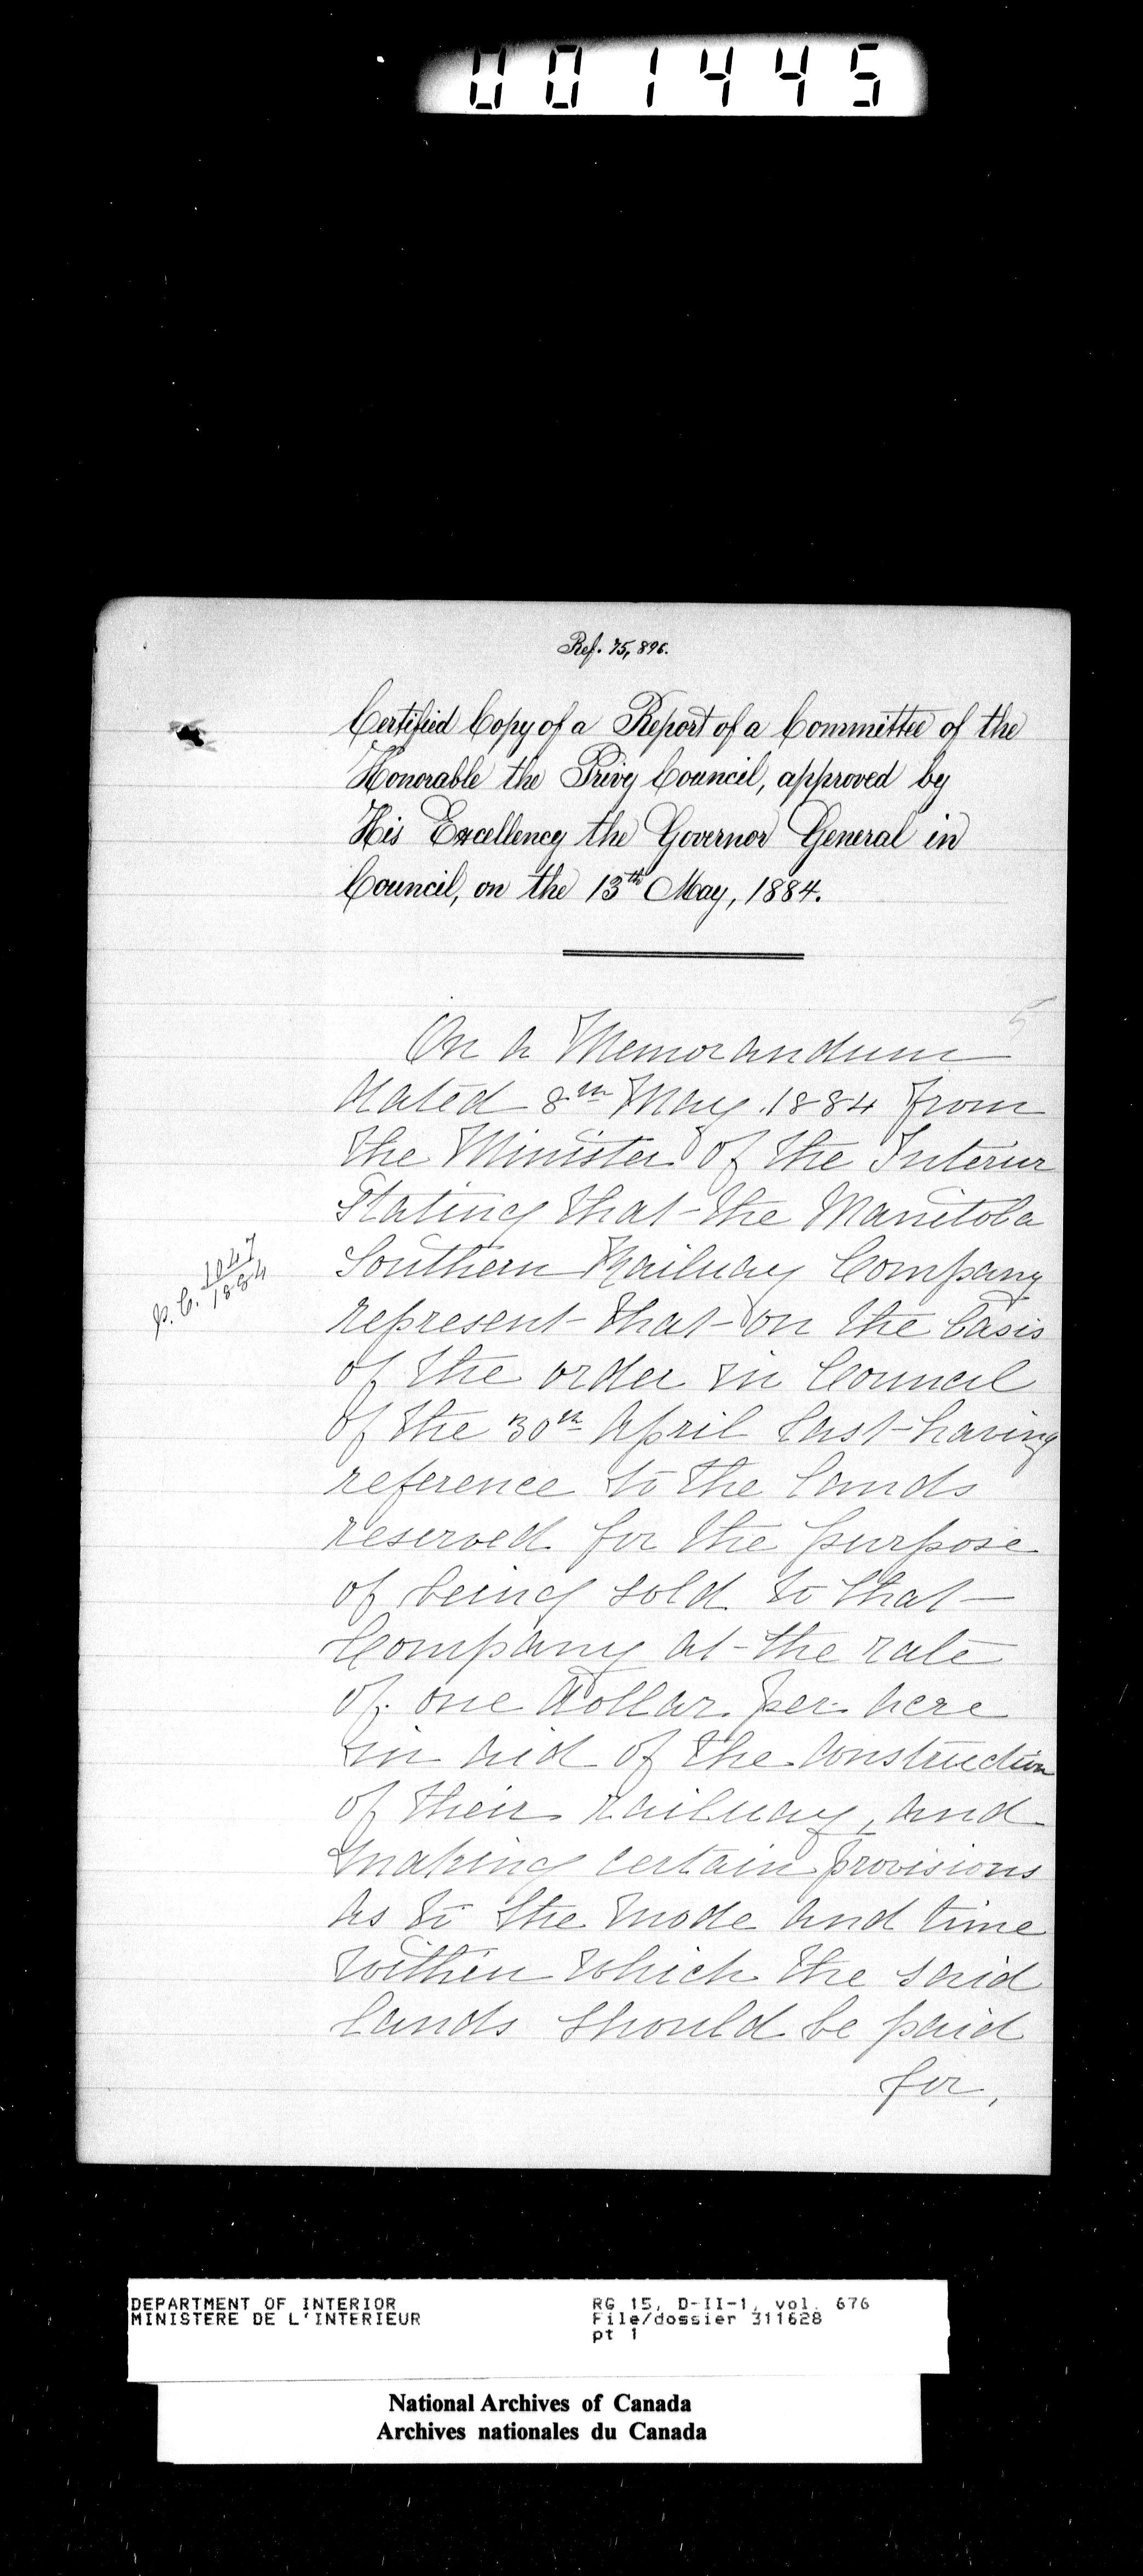 001445
Ref. 75,896.
Certified Copy of a Report of a Committee of the
Honorable the Privy Council, approved by
His Excellency the Governor General in
Council, on the 13th May, 1884.
5
On a Memorandum
dated 8th May 1884 from
the Minister of the Interior
Stating that the Manitoba
Southern Railway Company
P.C. 1047
1884
represent that on the basis
of the order in Council
of the 30th April last having
reference to the lands
reserved for the purpose
of being sold to that
Company at the rate
of one dollar per acre
in aid of the construction
of their railway, and
making certain provisions
as to the mode and time
within which the said
lands should be paid
for,
DEPARTMENT OF INTERIOR
MINISTERE DE L'INTERIEUR
RG 15, D-II-1, vol. 676
File/dossier 311628
pt 1
National Archives of Canada
Archives nationales du Canada